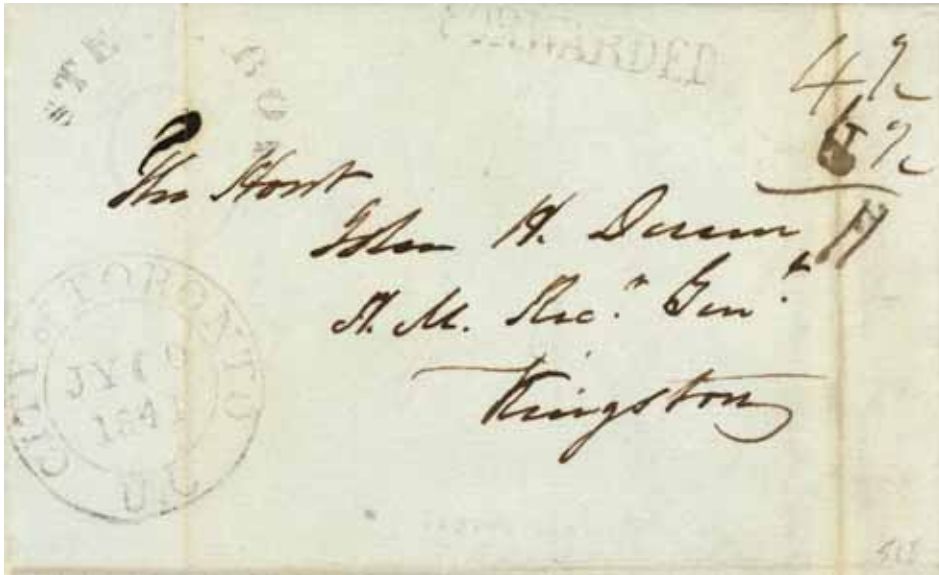 FORWARDED
4½
6½
11
The Honl
John H. Dunn
H. M. Recr. Genl.
Kingston
CITY OF TORONTO
JY
184
U.C